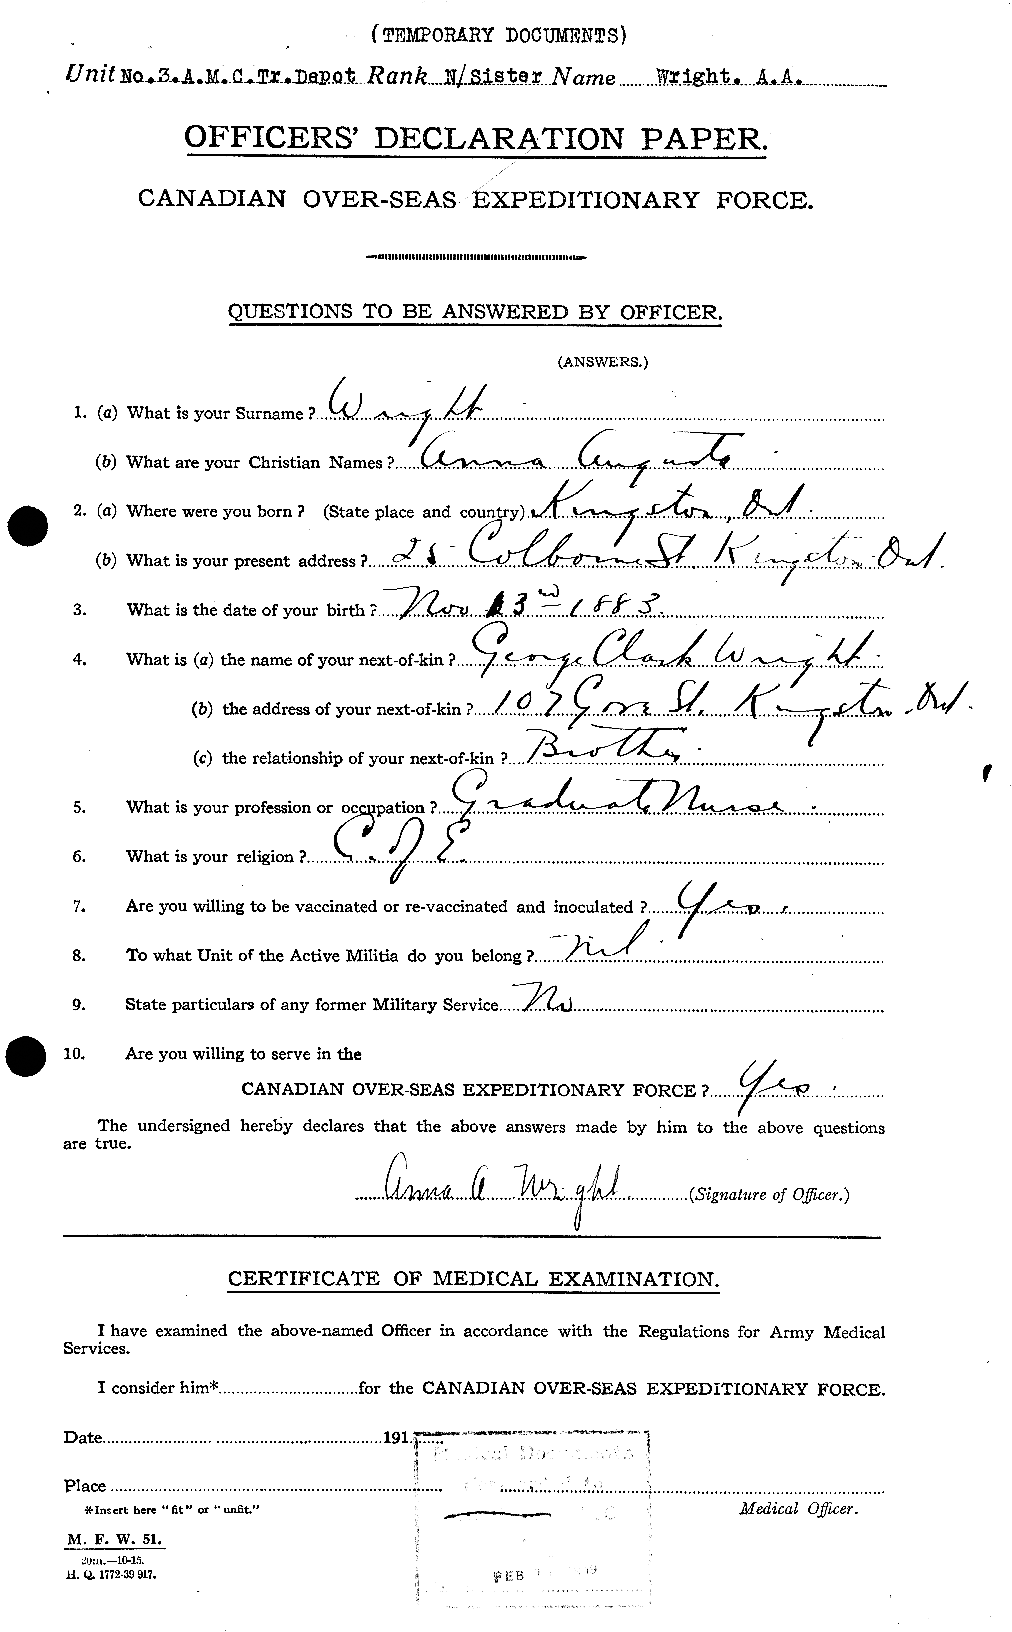 (TEMPORARY DOCUMENTS)
Unit No.3.A.M.C.Tr.Depot Rank N/Sister Name Wright. A.A.
OFFICERS' DECLARATION PAPER.
CANADIAN OVER-SEAS EXPEDITIONARY FORCE.
QUESTIONS TO BE ANSWERED BY OFFICER.
(ANSWERS.)
1. (a) What is your Surname? Wright
(b) What are your Christian Names? Anna Augusta
2. (a) Where were you born? (State place and country) Kingston, Ont.
(b) What is your present address? 25 Colborne St. Kingston Ont.
3. What is the date of your birth? Nov 3rd 1883.
4. What is (a) the name of your next-of-kin? George Clark Wright.
(b) the address of your next-of-kin? 107 Gore St. Kingston Ont.
(c) the relationship of your next-of-kin? Brother.
5. What is your profession or occupation? Graduate Nurse.
6. What is your religion? C. of E.
7. Are you willing to be vaccinated or re-vaccinated and inoculated? Yes.
8. To what Unit of the Active Militia do you belong? Nil
9. State particulars of any former Military Service No
10. Are you willing to serve in the
CANADIAN OVER-SEAS EXPEDITIONARY FORCE? Yes.
The undersigned hereby declares that the above answers made by him to the above questions
are true.
Anna A Wright (Signature of Officer.)
CERTIFICATE OF MEDICAL EXAMINATION.
I have examined the above-named Officer in accordance with the Regulations for Army Medical
Services.
I consider him* for the CANADIAN OVER-SEAS EXPEDITIONARY FORCE.
Date 191
Place
*Insert here "fit" or "unfit." Medical Officer.
M. F. W. 51.
10-15.
H. Q. 1772-39 917.
FEB